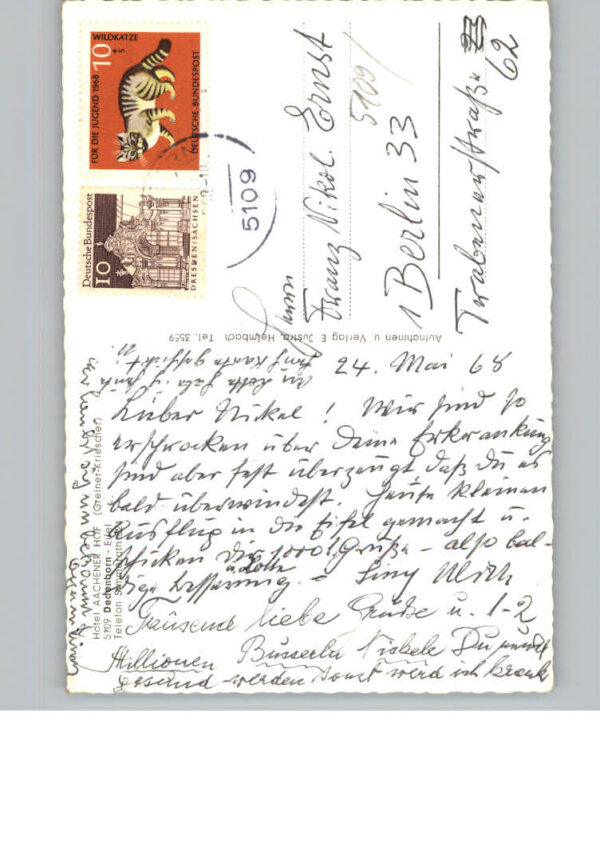 FÜR DIE JUGEND 1968
10
+5
WILDKATZE
DEUTSCHE BUNDESPOST
Deutsche Bundespost
10
DRESDEN/SACHSEN
5109
Herrn
Franz Nikol. Ernst
5109/
1 Berlin 33
Trabenerstraße
62
Aufnahmen u. Verlag E. Justra, Heimbach Tel. 3559
Hotel AACHENER HOF (Greiner-Krieschen)
5109 Dedenborn - Eifel
Telefon
24. Mai 68
Lieber Nikel! Wir sind so
erschrocken über Deine Erkrankung
sind aber fest überzeugt daß du es
bald überwindest. Heute kleinen
Ausflug in die Eifel gemacht u.
schicken Dir 1000 Grüße - also bal-
dige Besserung -
Tausend liebe Grüße u. 1-2
Millionen Busserln Du
gesund werden sonst werd ich krank